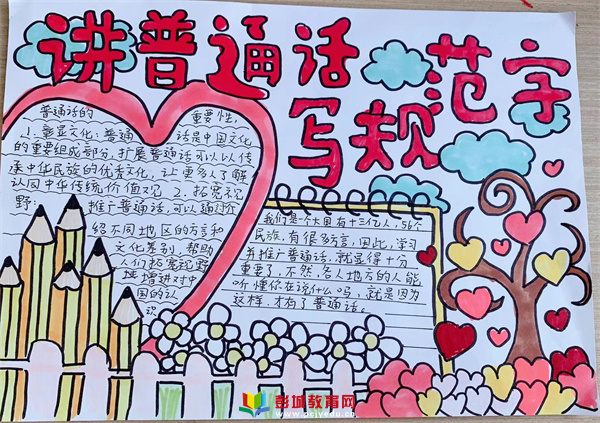 讲普通话
写规范字
普通话的 重要性.
1、彰显文化:普通话是中国文化
的重要组成部分,扩展普通话可以以传
承中华民族的优秀文化,让更多人了解
认同中华传统价值观 2、拓宽视
野: 推广普通话,可以
给不同地区的方言和
文化差别,帮助
人们拓宽视野
增进对中
国的认
识
我们是一个大国有十三亿人,56个
民族,有很多方言,因此,学习
并推广普通话,就显得十分
重要了,不然,各人地方的人能
听懂你在说什么吗,就是因为
这样,才有了普通话。
彭城教育网
www.pcjyedu.cn